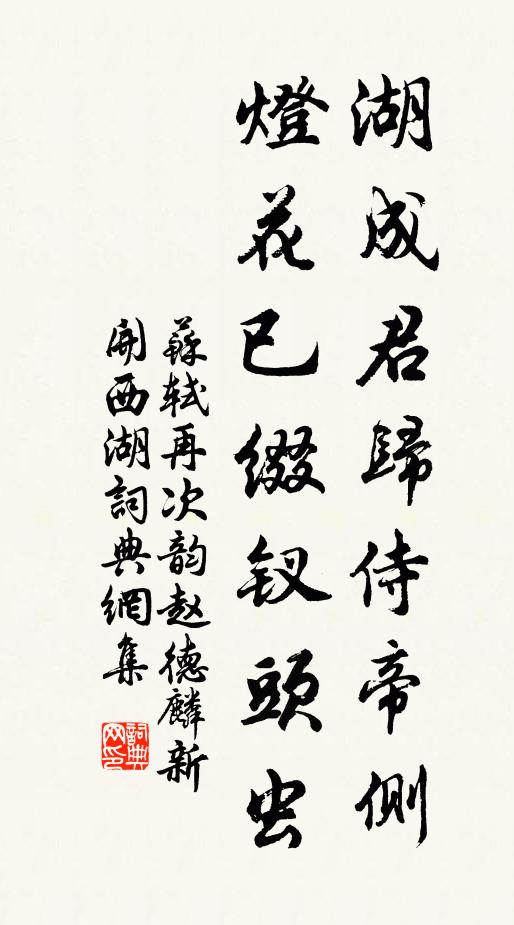 湖成君歸侍帝側
燈花已缀钗頭虫
蘇轼再次韵赵德麟新
開西湖詞典網集
詞典网印